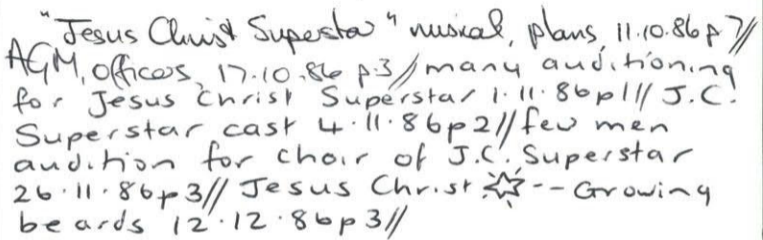 "Jesus Christ Superstar" musical, plans, 11.10.86 p7//
AGM, offices, 17.10.86 p.3//many auditioning
for Jesus Christ Superstar 1.11.86p1// J.C.
Superstar cast 4.11.86p2//few men
audition for choir of J.C. Superstar
26.11.86p3// Jesus Christ ☆ -- Growing
beards 12.12.86p3//